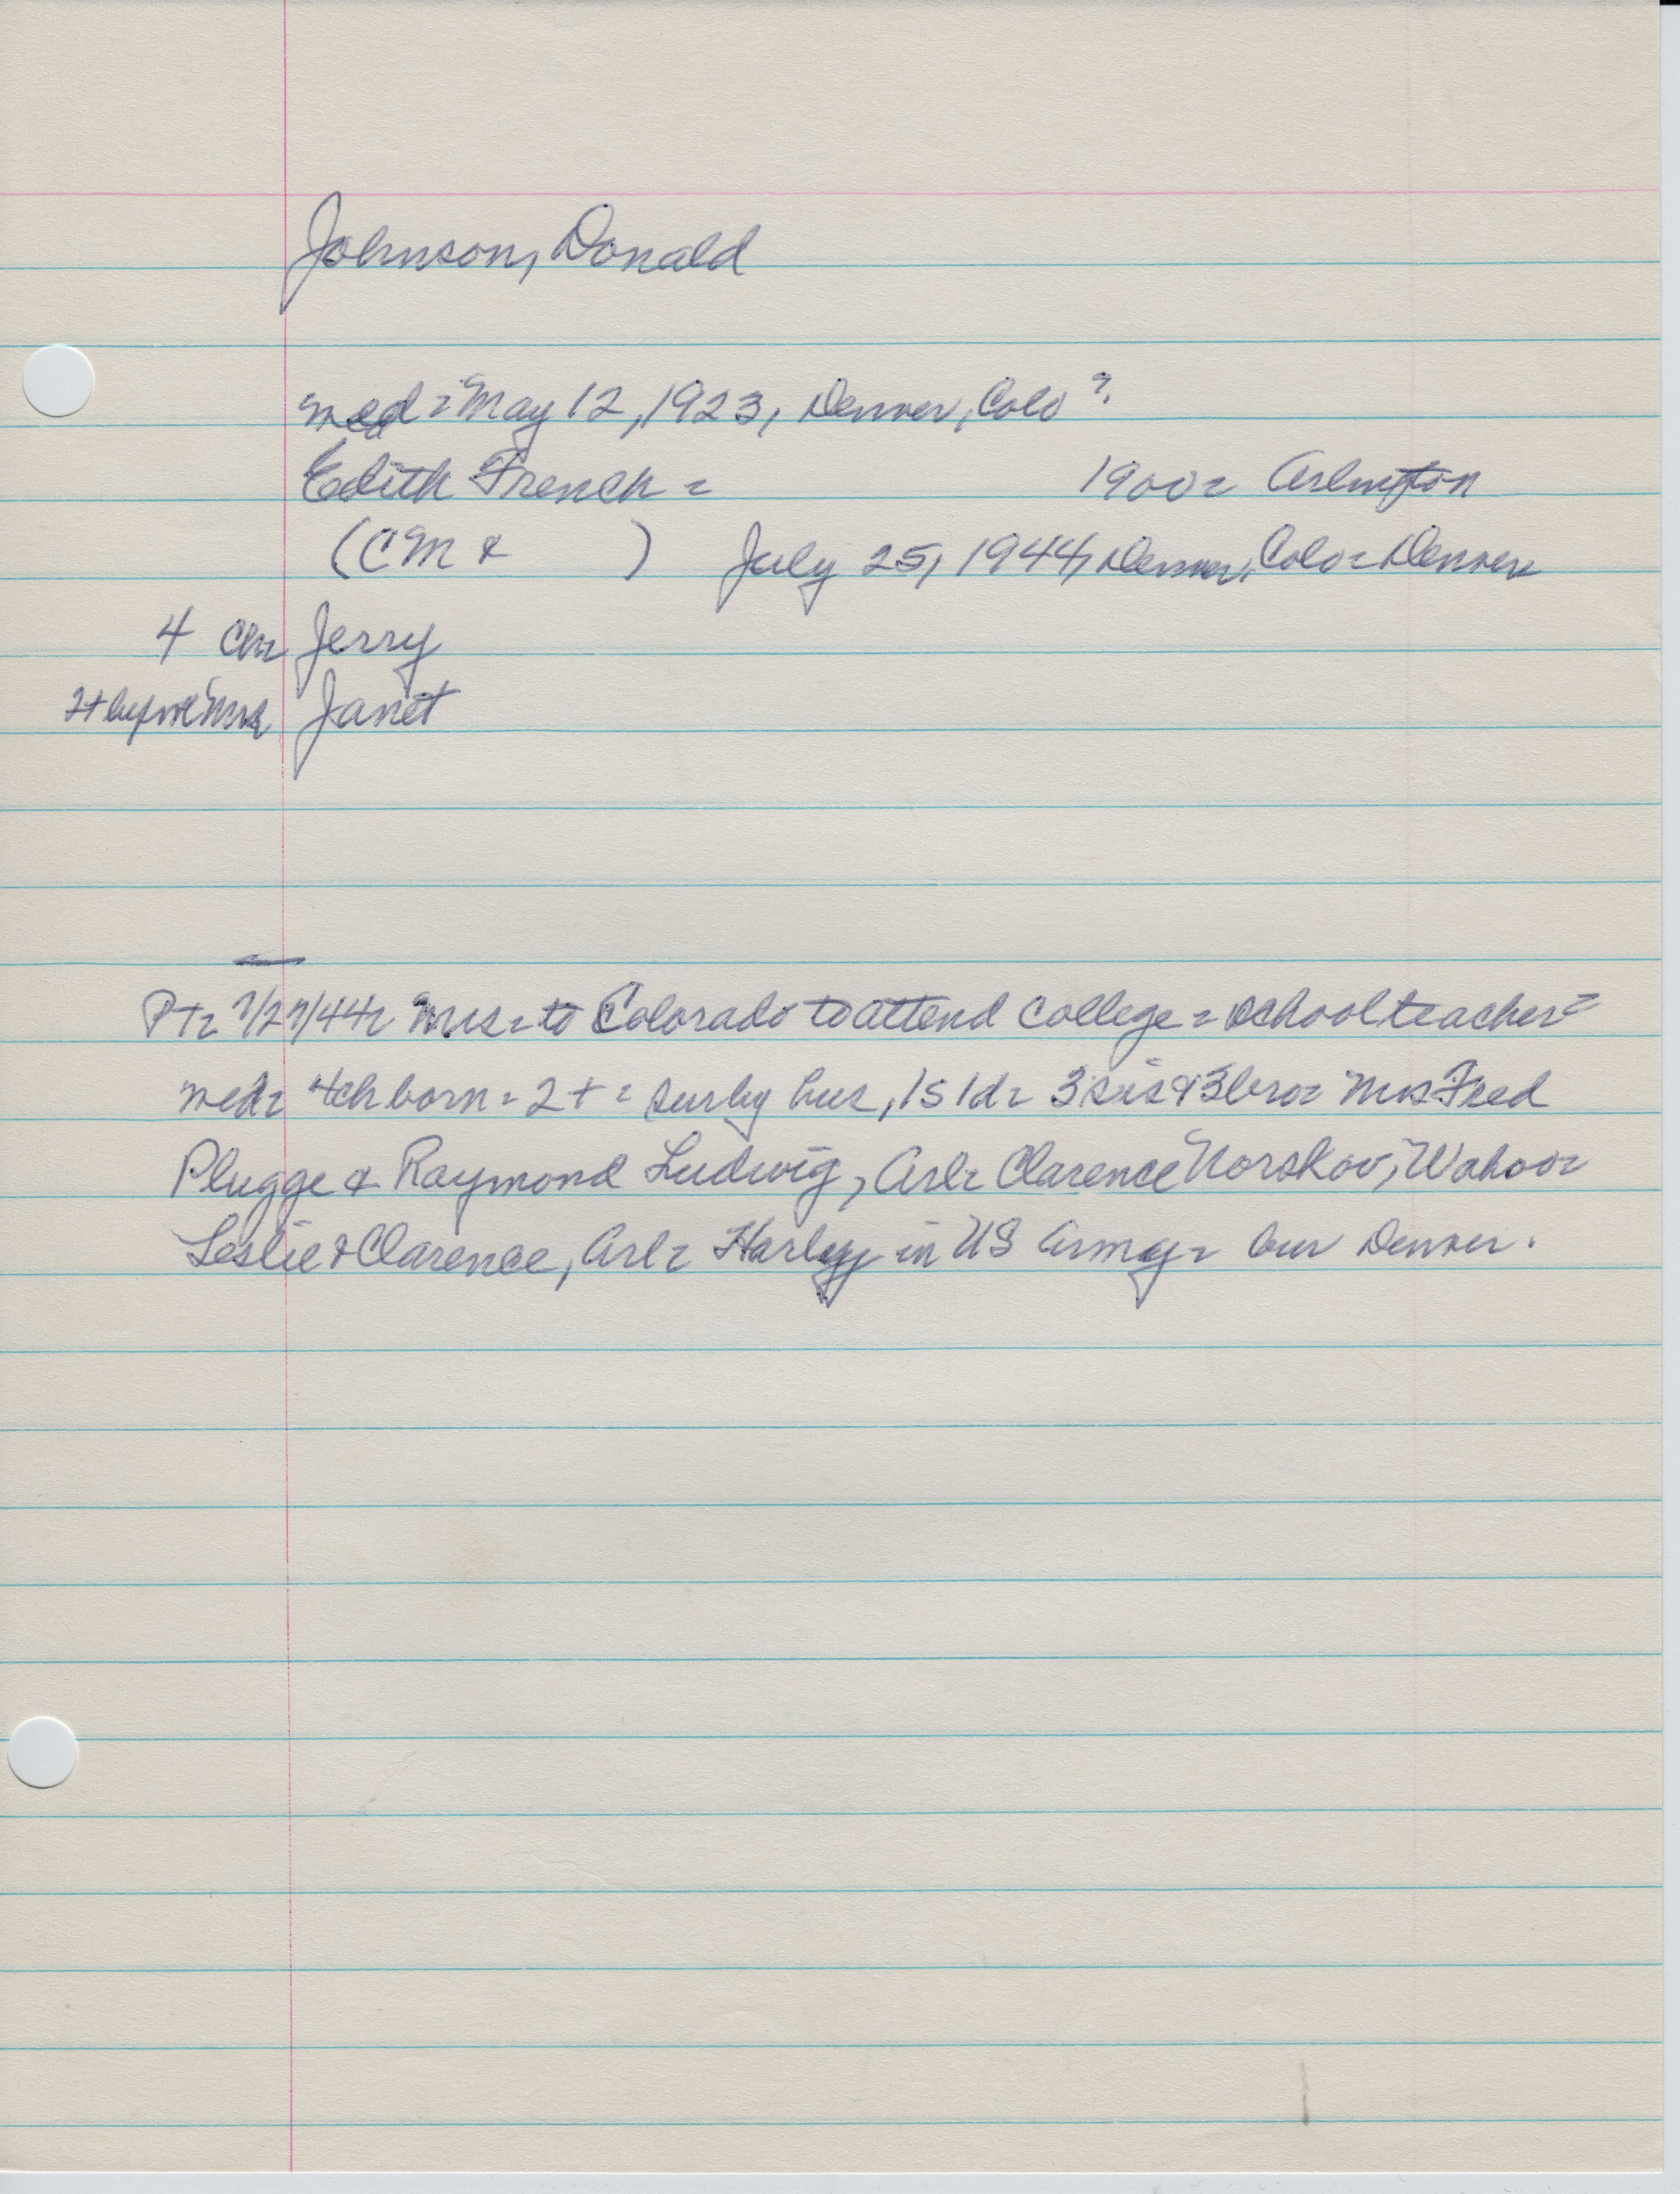 Johnson, Donald
med = May 12, 1923, Denver, Colo?
Edith French = 1900 = Arlington
(CM & ) July 25, 1944, Denver, Colo = Denver
4 Ch = Jerry
2+ before Mrs Janet
Pt = 7/27/44 = Mrs = to Colorado to attend college = school teacher =
med = 4ch born = 2+ = surby hus, 1s 1d = 3sis & 3bro = Mrs Fred
Plugge & Raymond Ludwig, Arl = Clarence Norskov, Wahoo =
Leslie & Clarence, Arl = Harley in US Army = bur Denver.